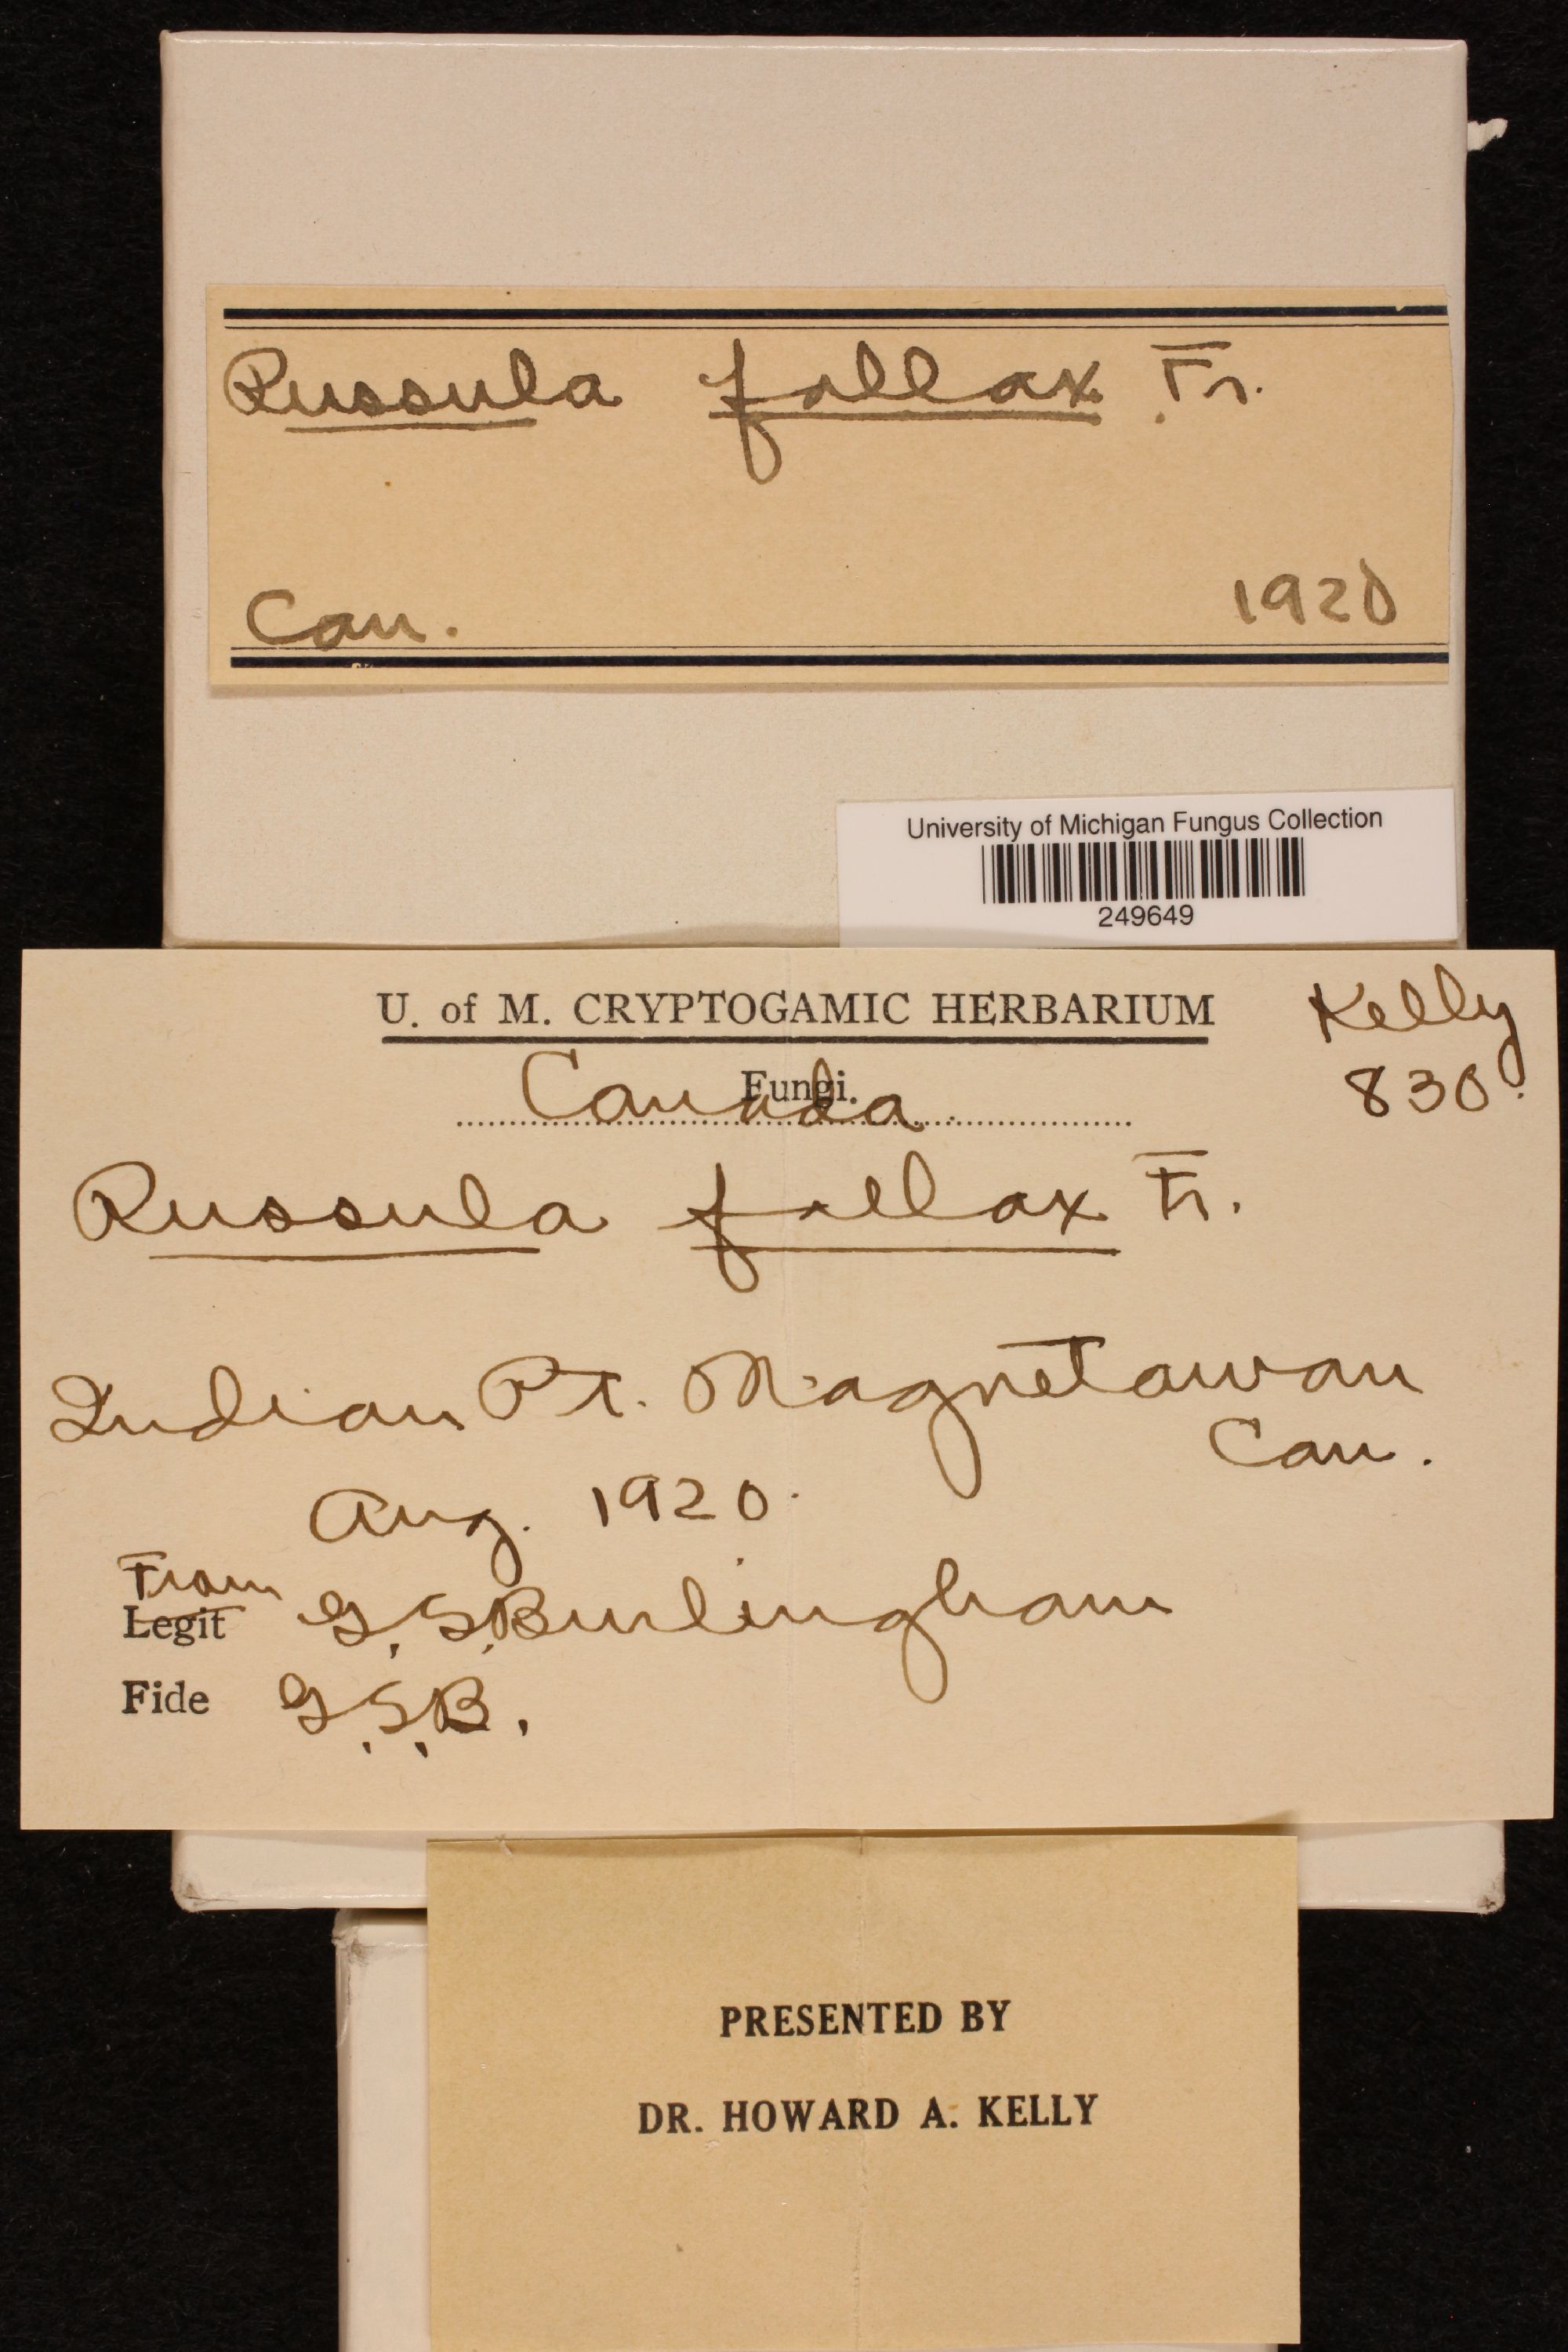 Russula fallax Fr.
Can. 1920
University of Michigan Fungus Collection
249649
U. of M. CRYPTOGAMIC HERBARIUM
Kelly
830
Fungi.
Canada
Russula fallax Fr.
Indian Pt. Magnetawan
Can.
Aug. 1920.
From
Legit G. S. Burlingham
Fide G. S. B.
PRESENTED BY
DR. HOWARD A. KELLY